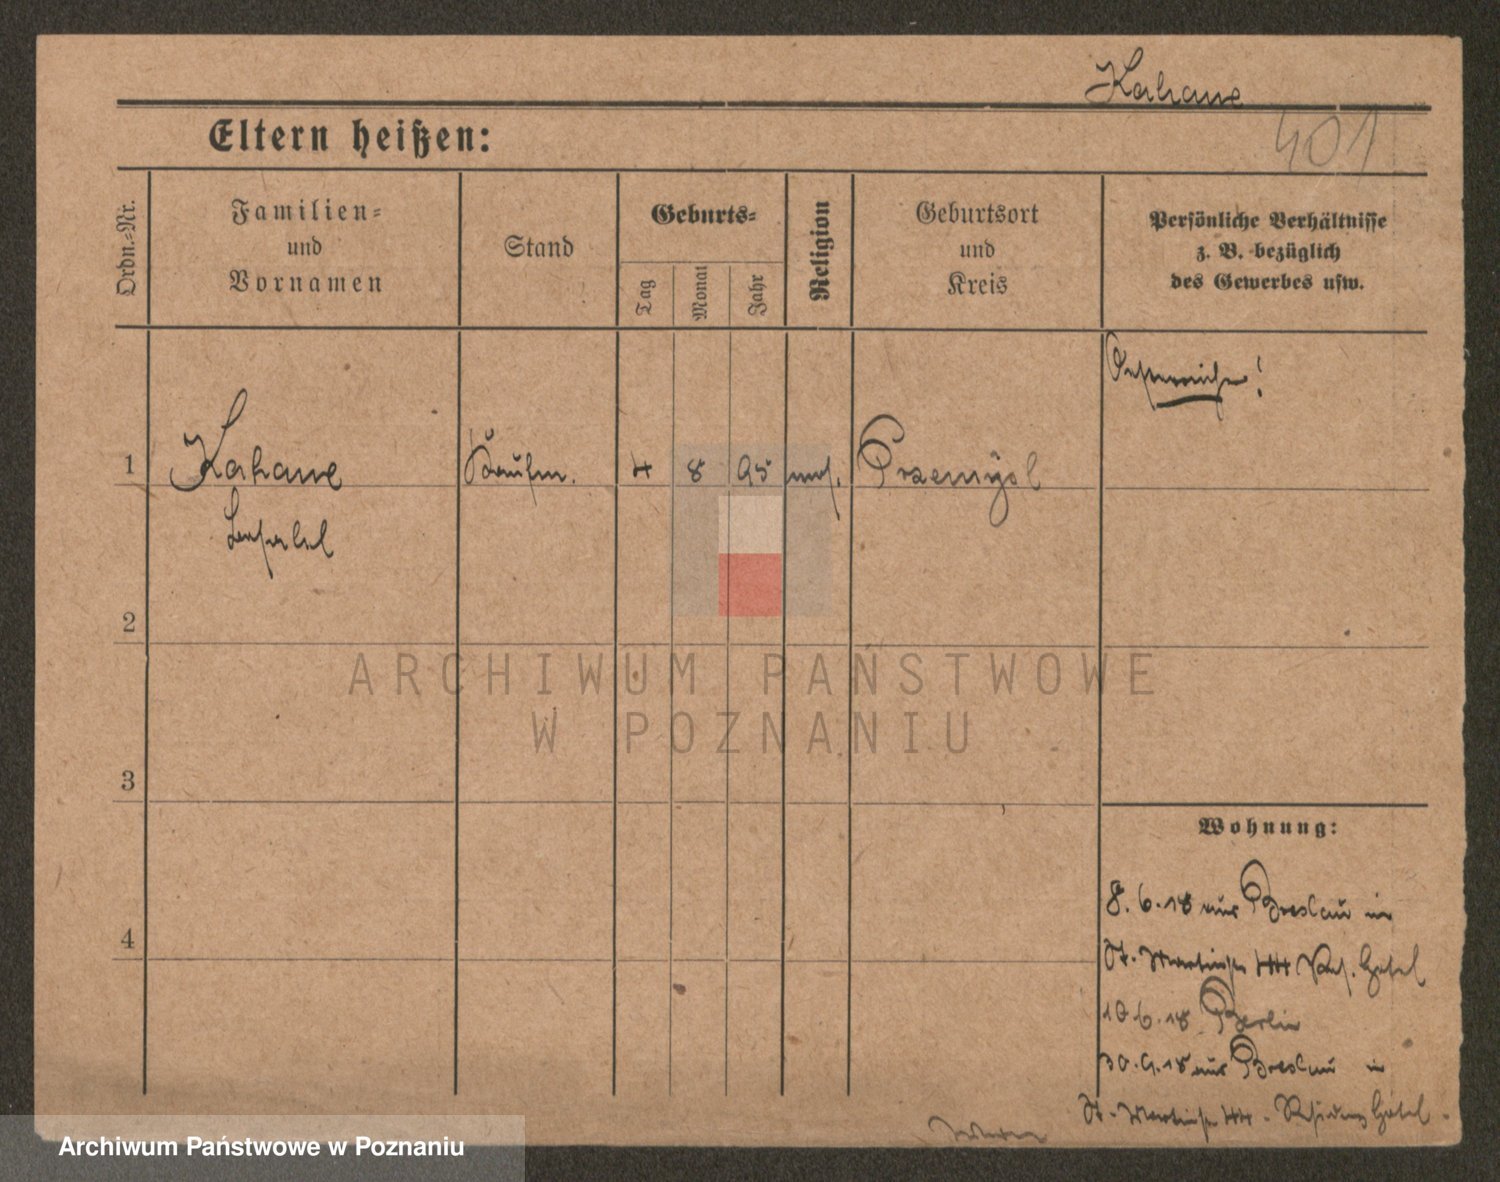 Kahane
401
Eltern heißen:
Ordn.-Nr.
Familien-
und
Vornamen
Stand
Geburts-
Tag
Monat
Jahr
Religion
Geburtsort
und
Kreis
Persönliche Verhältnisse
z. B. bezüglich
des Gewerbes usw.
Oesterreicher!
1
Kahane
Kaufm.
4
8
95
mos.
Przemysl
2
3
4
Wohnung:
8.6.18 aus Breslau in
St. Martinstr 44 Res. Hotel
10.6.18 Berlin
30.9.18 aus Breslau in
St. Martinstr 44. Residenz Hotel.
ARCHIWUM PAŃSTWOWE
W POZNANIU
Archiwum Państwowe w Poznaniu